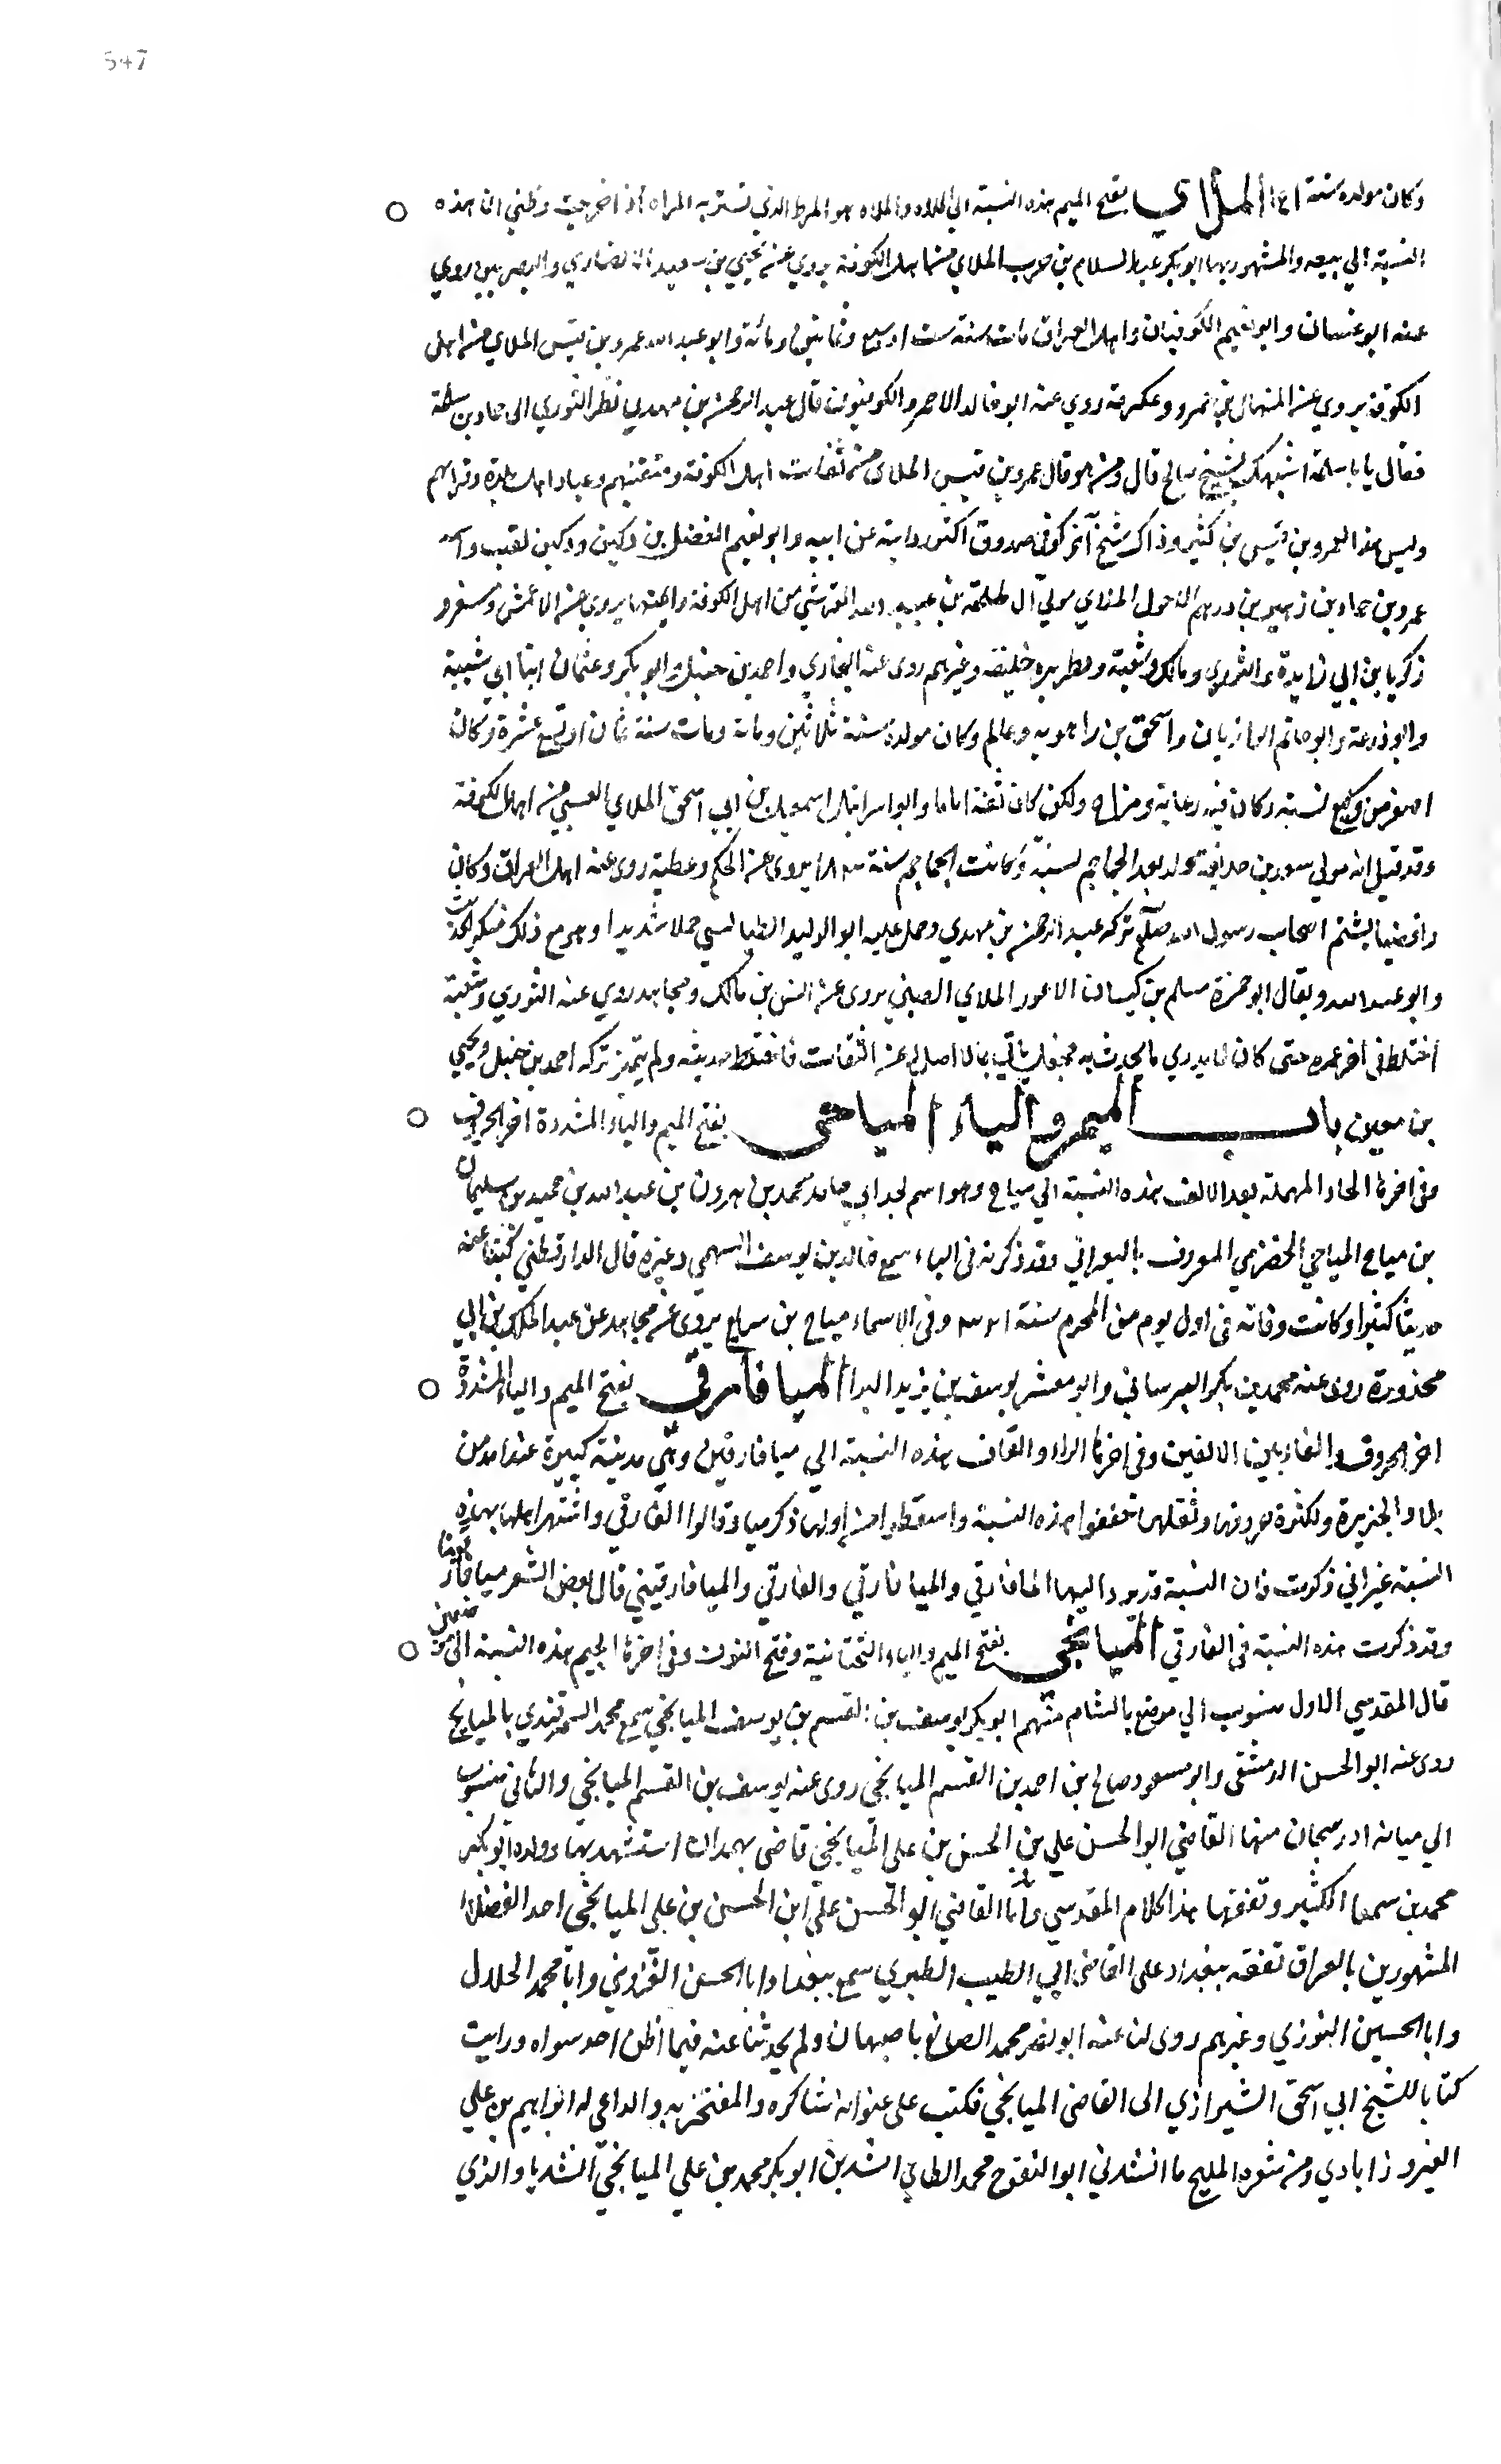 547
وكان مولده سنة الملاي بفتح الميم هذه النسبة الي الملاه والملاه هو المرط الذي تستر به المراه اذا خرجت وظني ان هذه
النسبة الي بيعه والمشهور بها ابو بكر عبد السلام بن حرب الملاي من اهل الكوفة يروي عن يحيي بن سعيد الانصاري والبصريين روي
عنه ابو غسان وابو نعيم الكوفيان واهل العراق مات سنة ست او سبع وثمانين ومائة وابو عبد الله عمرو بن قيس الملاي من اهل
الكوفة يروي عن المنهال بن عمرو وعكرمة روي عنه ابو خالد الاحمر والكوفيون قال عبد الرحمن بن مهدي نظر الثوري الى حماد بن سلمة
فقال يا با سلمة اشبهك بشيخ صالح قال ومن هو قال عمرو بن قيس الملاى من ثقات اهل الكوفة ومتقنيهم وعباد اهل بلده وقرائهم
وليس هذا بعمرو بن قيس بن كثير وذاك شيخ آخر كوفى صدوق اكثر روايته عن ابيه وابو نعيم الفضل بن دكين ودكين لقب واسمه
عمرو بن حماد بن زهير بن درهم الاحول الملاي مولي آل طلحة بن عبيد الله القرشي من اهل الكوفة يروي عن الاعمش ومسعر و
زكريا بن ابي زايدة والثوري ومالك وشعبة وفطر بن خليفة وغيرهم روى عنه البخاري واحمد بن حنبل وابو بكر وعثمان ابنا ابي شيبة
وابو زرعة وابو حاتم الرازيان واسحق بن راهويه وعالم وكان مولده سنة ثلاثين ومائة ومات سنة ثمان او تسع عشرة وكان
اصغر من وكيع بسنة وكان فيه دعابة ومزاح ولكن كان ثقة اماما وابو اسرائيل اسمعيل بن ابي اسحق الملاي العبسي من اهل الكوفة
وقد قيل انه مولي سعد بن حذيفة ولد بعد الجماجم بسنة وكانت الجماجم سنة يروى عن الحكم وعطية روى عنه اهل العراق وكان
رافضيا يشتم اصحاب رسول الله صلعم تركه عبد الرحمن بن مهدي وحمل عليه ابو الوليد الطيالسي حملا شديدا وهو مع ذلك منكر الحديث
وابو عبد الله ويقال ابو حمزة مسلم بن كيسان الاعور الملاي الضبي يروى عن انس بن مالك ومجاهد روي عنه الثوري وشعبة
اختلط فى اخر عمره حتى كان لا يدري ما يحدث به فجعل ياتي بما لا اصل له عن الثقات فاختلط حديثه ولم يتميز تركه احمد بن حنبل ويحيي
بن معين باب الميم والياء المياحى بفتح الميم والياء المشددة اخر الحروف
وفى اخرها الحاء المهملة بعد الالف هذه النسبة الي مياح وهو اسم لجد ابي حامد محمد بن هرون بن عبد الله بن حميد بن سليمان
بن مياح المياحي الحضرمي المعروف بالبعراني وقد ذكرته فى الباء سمع خالد بن يوسف السهمي وغيره قال الدارقطني كتبنا عنه
حديثا كثيرا وكانت وفاته فى اول يوم من المحرم سنة وفى الاسماء مياح بن سريع يروى عن مجاهد عن عبد الملك بن ابي
محذورة روى عنه محمد بن بكر البرساني وابو معشر يوسف بن يزيد البرا الميافارقي بفتح الميم والياء المشددة
اخر الحروف والفاء بين الالفين وفى اخرها الراء والقاف هذه النسبة الي ميافارقين وهي مدينة كبيرة عند امد من
بلاد الجزيرة ولكثرة حروفها وثقلها خففوا هذه النسبة واسقطوا من اولها ذكر ميا وقالوا الفارقي واشتهر اهلها بهذه
النسبة غير اني ذكرت ذان النسبة قد يرد اليها المافارقي والميافارقي والفارقي والميافارقيني قال بعض الشعر ميافارقينا
وقد ذكرت هذه النسبة في الفارقي الميانجى بفتح الميم والياء التحتانية وفتح النون وفى اخرها الجيم هذه النسبة الى موضعين
قال المقدسي الاول منسوب الي موضع بالشام منهم ابو بكر يوسف بن القسم بن يوسف الميانجي سمع محمد السمرقندي بالميانج
روى عنه ابو الحسن الدمشقى وابو مسعود صالح بن احمد بن القسم الميانجي روى عنه يوسف بن القسم الميانجي والثانى منسوب
الي ميانه ادربيجان منها القاضي ابو الحسن علي بن الحسن بن على الميانجي قاضى بهمدان استشهد بها وولده ابو بكر
محمد بن سمعا الكثير وتفقها هذا كلام المقدسي وأنا القاضي ابو الحسن علي ابن الحسن بن على الميانجي احد الفضلا
المشهورين بالعراق تفقه ببغداد على القاضى ابي الطيب الطبري سمع ببغداد ابا الحسن القزويني وابا محمد الخلال
وابا الحسين التوزي وغيرهم روى لنا عنه ابو نصر محمد الصائغ باصبهان ولم يحدثنا عنه فيما اظن احد سواه ورايت
كتابا للشيخ ابي اسحق الشيرازي الى القاضى الميانجي فكتب على عنوانه شاكره والمفتخر به والداعي له ابراهيم بن علي
الفيروزابادي ومن شعره المليح ما انشدني ابو الفتوح محمد الطائي انشدنى ابو بكر محمد بن علي الميانجي انشد يا والذي